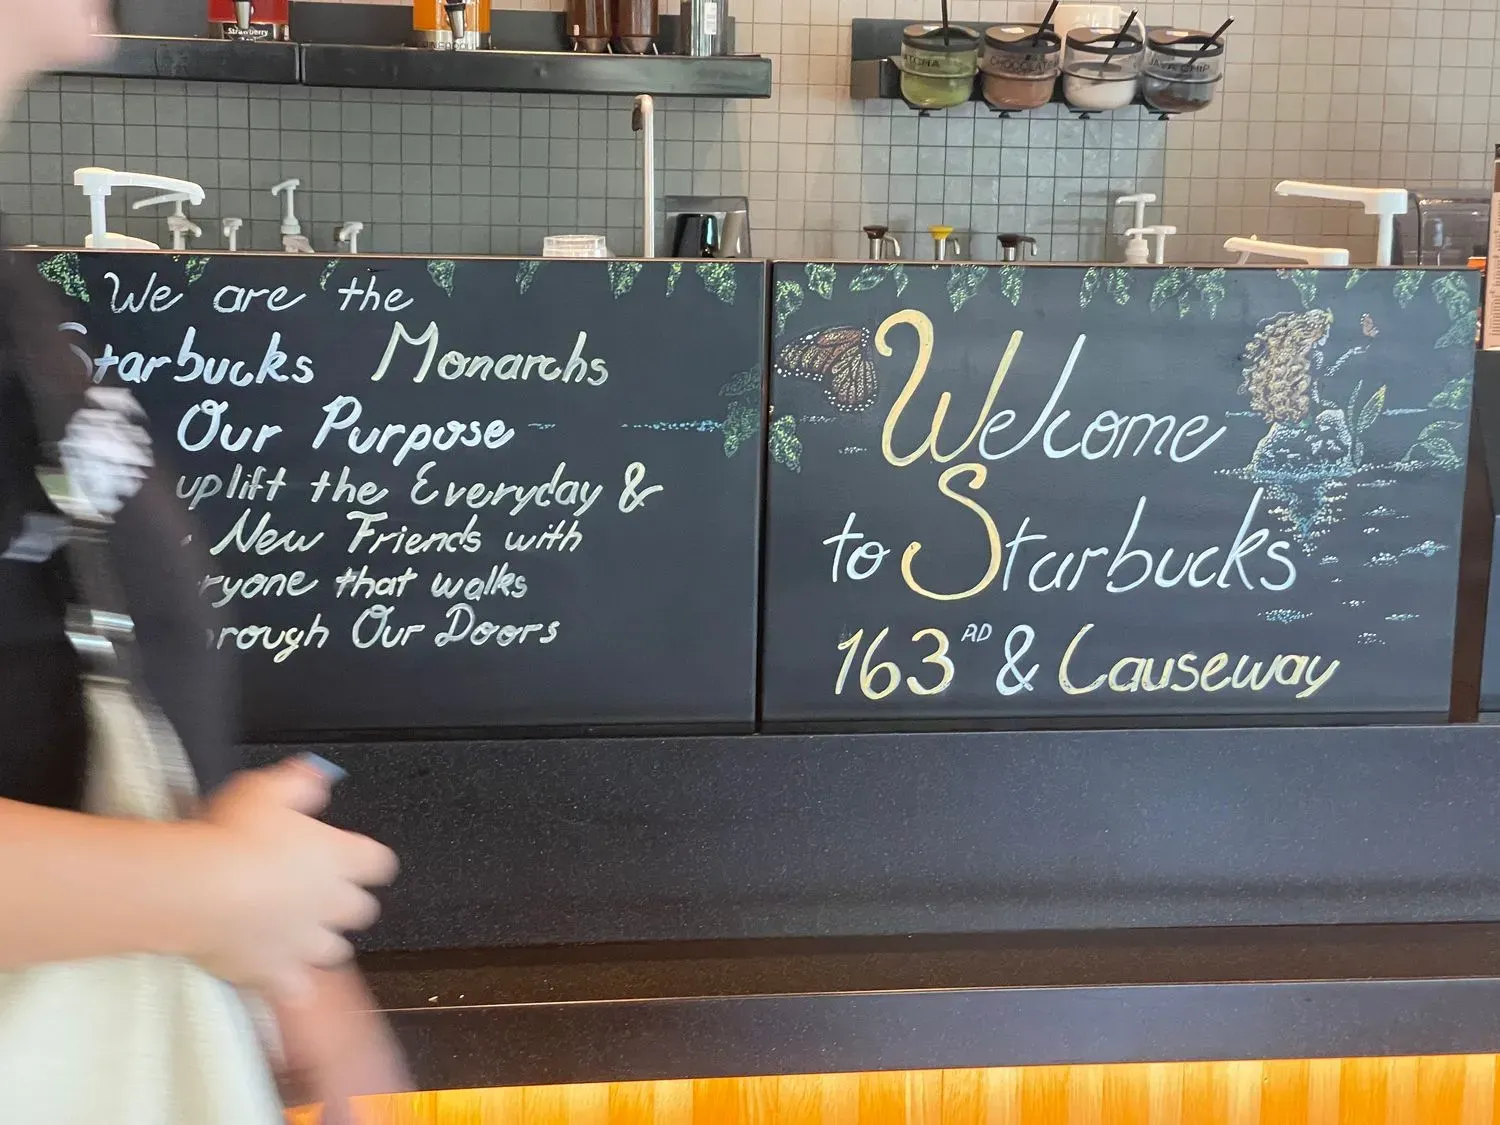 Strawberry
MATCHA
CHOCOLATE
JAVA CHIP
We are the
Starbucks Monarchs
Our Purpose
uplift the Everyday &
New Friends with
ryone that walks
rough Our Doors
Welcome
to Starbucks
163RD & Causeway